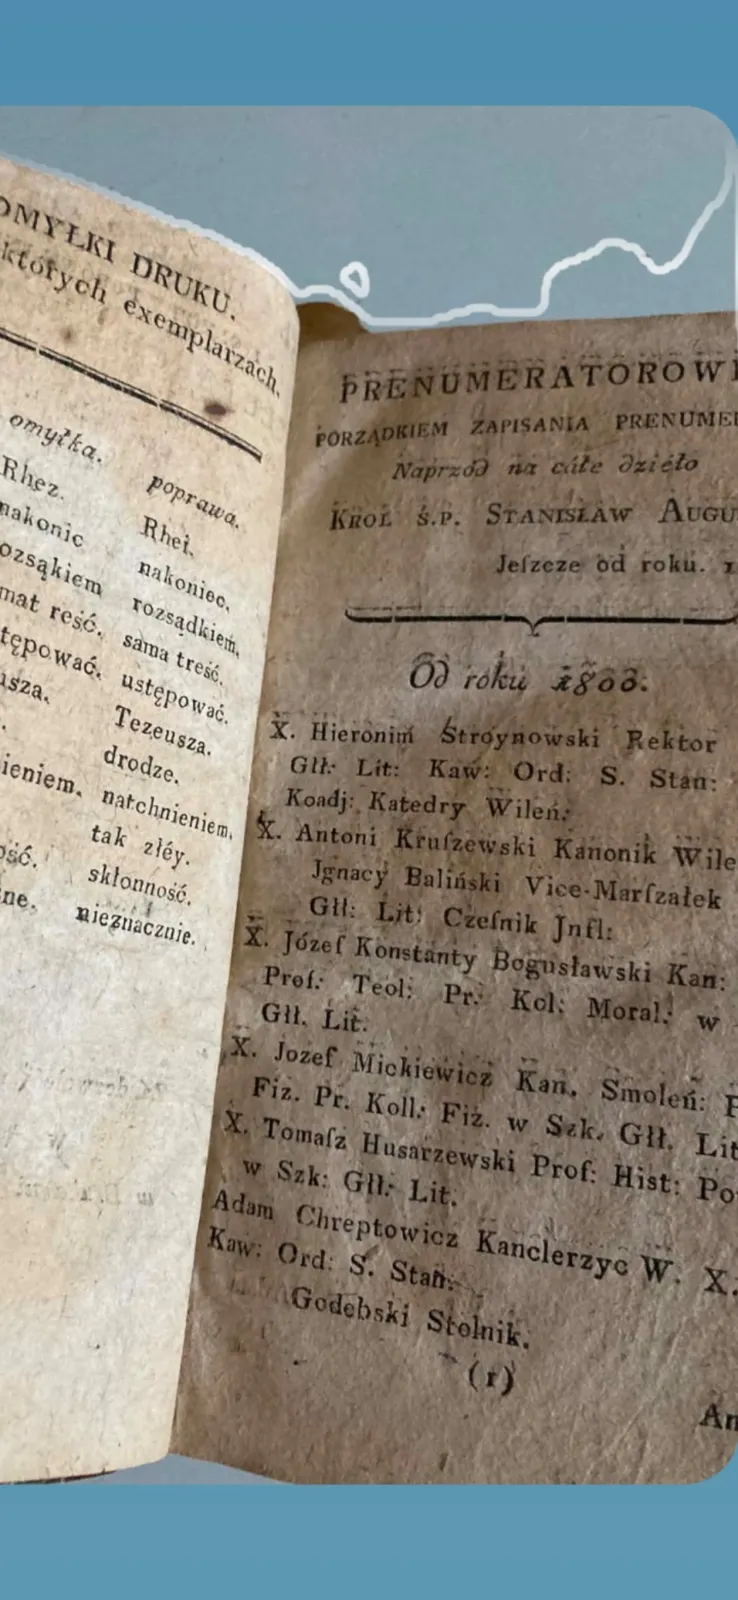 OMYŁKI DRUKU.
których exemplarzach.
omyłka. poprawa.
Rhez. Rhet.
nakonic nakoniec.
rozsądkiem.
mat reść. sama treść.
ustępować.
Tezeusza.
drodze.
natchnieniem.
tak złéy.
skłonność.
nieznacznie.
PRENUMERATOROWI
PORZĄDKIEM ZAPISANIA
Naprzód na całe dzieło
KROL Ś.P. STANISŁAW
Jeſzcze od roku.
Od roku 1800.
X. Hieronim Stroynowski Rektor
Głł: Lit: Kaw: Ord: S. Stan:
Koadj: Katedry Wileń:
X. Antoni Kruſzewski Kanonik
Jgnacy Baliński Vice-Marſzałek
Głł: Lit: Czeſnik Jnfl:
X. Józef Konstanty Bogusławski Kan:
Prof: Teol: Pr: Kol: Moral: w
Głł. Lit:
X. Jozef Mickiewicz Kan. Smoleń:
Fiz. Pr. Koll: Fiz. w Szk. Głł. Lit
X. Tomaſz Husarzewski Prof: Hist:
w Szk: Głł: Lit.
Adam Chreptowicz Kanclerzyc W. X.
Kaw: Ord: S. Stan:
Godebski Stolnik.
(1)
An